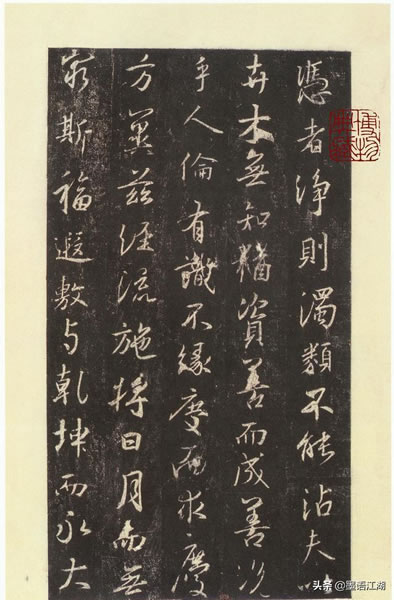 憑者淨則濁類不能沾夫以
卉木無知猶資善而成善況
乎人倫有識不緣慶而求慶
方冀茲經流施將日月而無
窮斯福遐敷与乾坤而永大
博物
头条